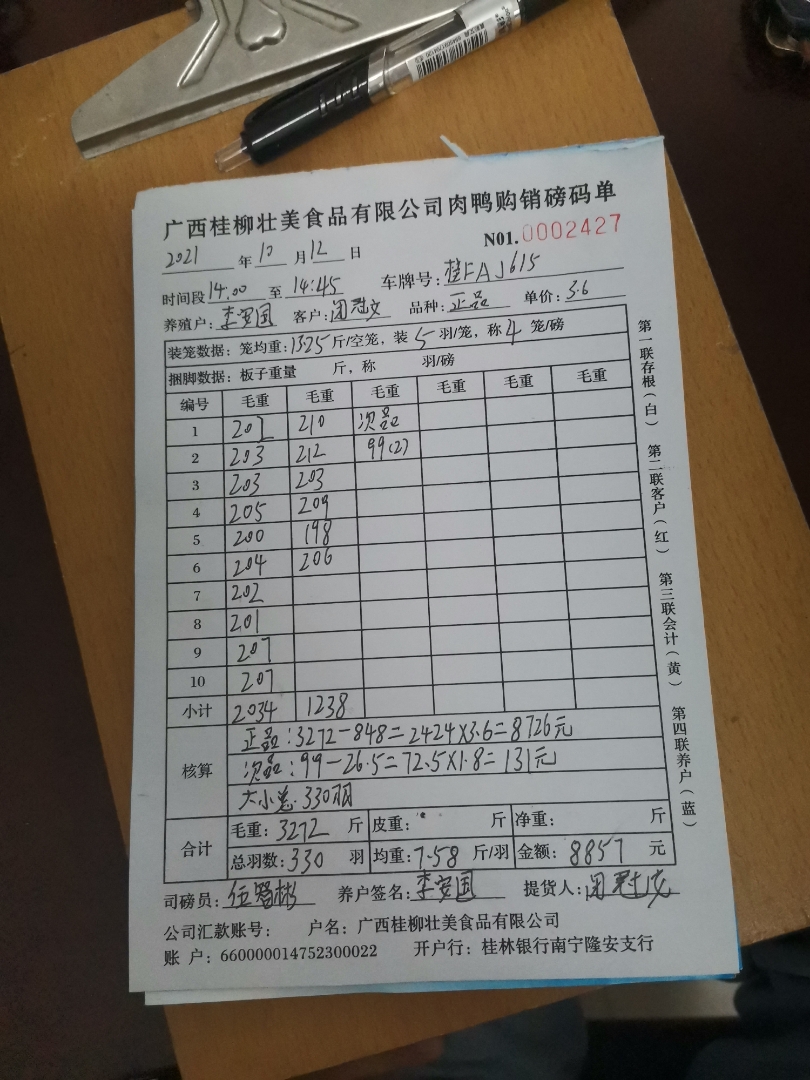 广西桂柳壮美食品有限公司肉鸭购销磅码单
2021 年 10 月 12 日 N01.0002427
时间段 14:00 至 14:45 车牌号: 桂FAJ615
养殖户: 李安国 客户: 闭冠文 品种: 正品 单价: 3.6
装笼数据: 笼均重: 13.25 斤/空笼, 装 5 羽/笼, 称 4 笼/磅
捆脚数据: 板子重量 斤, 称 羽/磅
编号 毛重 毛重 毛重 毛重 毛重 毛重
1 202 210 次品
2 203 212 99(2)
3 203 203
4 205 209
5 200 198
6 204 206
7 202
8 201
9 207
10 207
小计 2034 1238
核算
正品: 3272-848=2424×3.6=8726元
次品: 99-26.5=72.5×1.8=131元
大小总 330羽
合计
毛重: 3272 斤 皮重: 斤 净重: 斤
总羽数: 330 羽 均重: 7.58 斤/羽 金额: 8857 元
司磅员: 伍智彬 养户签名: 李安国 提货人: 闭冠文
公司汇款账号: 户名: 广西桂柳壮美食品有限公司
账 户: 660000014752300022 开户行: 桂林银行南宁隆安支行
第一联存根(白) 第二联客户(红) 第三联会计(黄) 第四联养户(蓝)